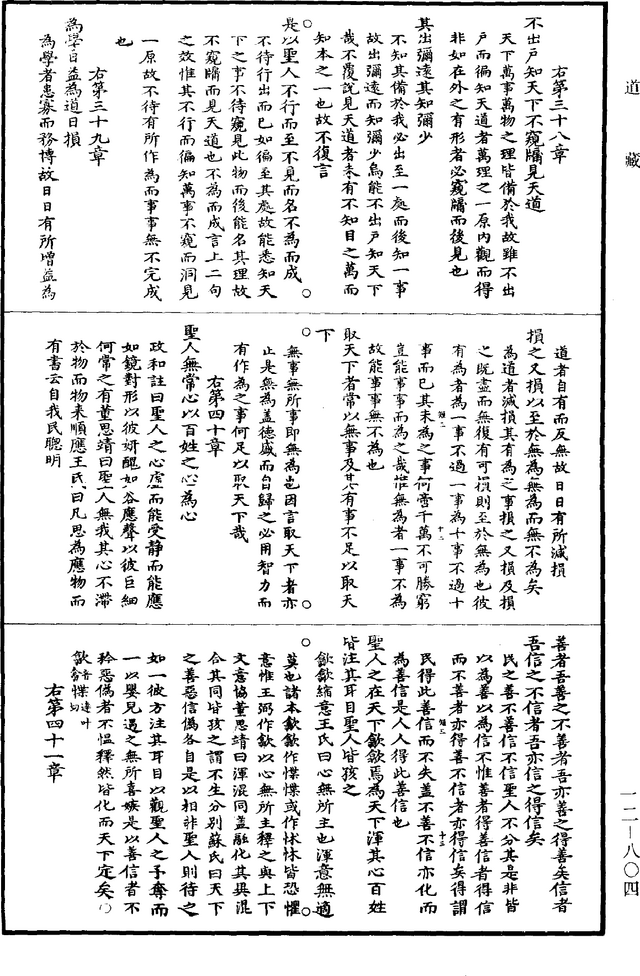 道藏
右第三十八章
不出戶知天下不窺牖見天道
天下萬事萬物之理皆備於我故雖不出
戶而徧知天道者萬理之一原內觀而得
非如在外之有形者必窺牖而後見也
其出彌遠其知彌少
不知其備於我必出至一處而後知一事
故出彌遠而知彌少烏能不出戶知天下
哉不覆說見天道者未有不知目之萬而
知本之一也故不復言
是以聖人不行而至不見而名不為而成
不待行出而已如徧至其處故能悉知天
下之事不待窺見此物而後能名其理故
不窺牖而見天道也不為而成言上二句
之效惟其不行而徧知萬事不窺而洞見
一原故不待有所作為而事事無不完成
也
右第三十九章
為學日益為道日損
為學者患寡而務博故日日有所增益為
道者自有而反無故日日有所減損
損之又損以至於無為無為而無不為矣
為道者減損其有為之事損之又損及損
之既盡而無復有可損則至於無為也彼
有為者為一事不過一事為十事不過十
事而已其未為之事何啻千萬不可勝窮
豈能事事而為之哉惟無為者一事不為
故能事事無不為也
取天下者常以無事及其有事不足以取天
下
無事無所事即無為也因言取天下者亦
止是無為蓋德盛而自歸之必用智力而
有作為之事何足以取天下哉
右第四十章
聖人無常心以百姓之心為心
政和註曰聖人之心虛而能受靜而能應
如鏡對形以彼妍醜如谷應聲以彼巨細
何常之有董思靖曰聖人無我其心不滯
於物而物來順應王氏曰凡思為應物而
有書云自我民聰明
善者吾善之不善者吾亦善之得善矣信者
吾信之不信者吾亦信之得信矣
民之善不善信不信聖人不分其是非皆
以為善以為信不惟善者得善信者得信
而不善者亦得善不信者亦得信矣得謂
民得此善信而不失蓋不善不信亦化而
為善信是人人得此善信也
聖人之在天下歙歙焉為天下渾其心百姓
皆注其耳目聖人皆孩之
歙歙縮意王氏曰心無所主也渾意無適
莫也諸本歙歙作惵惵或作怵怵皆恐懼
意惟王弼作歙以心無所主釋之與上下
文意協董思靖曰渾混同蓋融化其異混
合其同皆孩之謂不生分別蘇氏曰天下
之善惡信偽各自是以相非聖人則待之
如一彼方注其耳目以觀聖人之予奪而
一以嬰兒遇之無所喜嫉是以善信者不
矜惡偽者不慍釋然皆化而天下定矣
歙音翕惵達叶切
右第四十一章
一二—八〇四